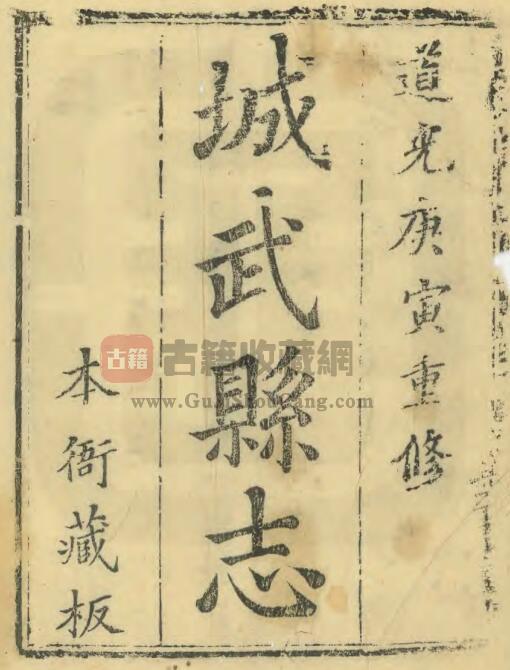 道光庚寅重修
城武縣志
本衙藏板
古籍
古籍收藏網
www.GuJiShouCang.com